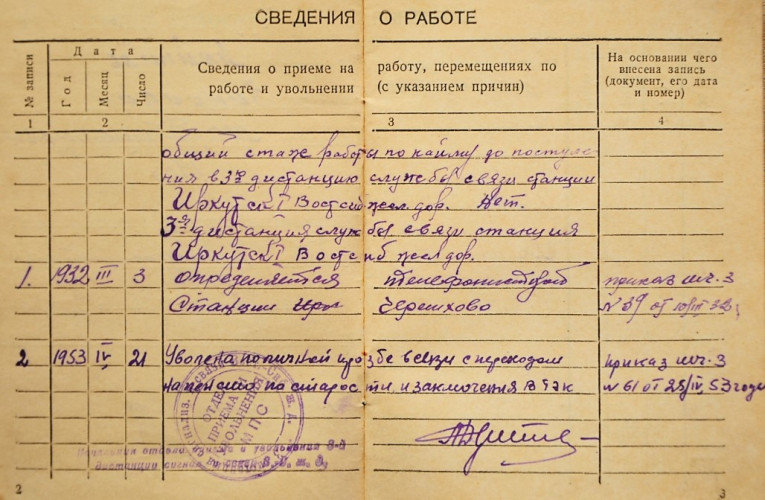 СВЕДЕНИЯ О РАБОТЕ
№ записи
Дата
Год
Месяц
Число
Сведения о приеме на работу, перемещениях по
работе и увольнении (с указанием причин)
На основании чего
внесена запись
(документ, его дата
и номер)
1 2 3 4
общий стаж работы по найму до поступле-
ния в 3ю дистанцию службы связи станции
Иркутск I Вост сиб жел. дор. нет.
3я дистанция службы связи станция
Иркутск I Вост сиб жел дор.
1. 1932 III 3 определяется телефонисткой приказ шч. 3
Станции Черемхово № 59 от
2 1953 IV 21 Уволена по личной просьбе в связи с переходом приказ шч-3
на пенсию по старости и заключения ВТЭК № 61 от 25/IV 53 года
ОТДЕЛ
ПРИЕМА И
УВОЛЬНЕНИЯ
МПС
Начальник отдела приема и увольнения 3-й
дистанции связи В. С. ж. д.
2 3